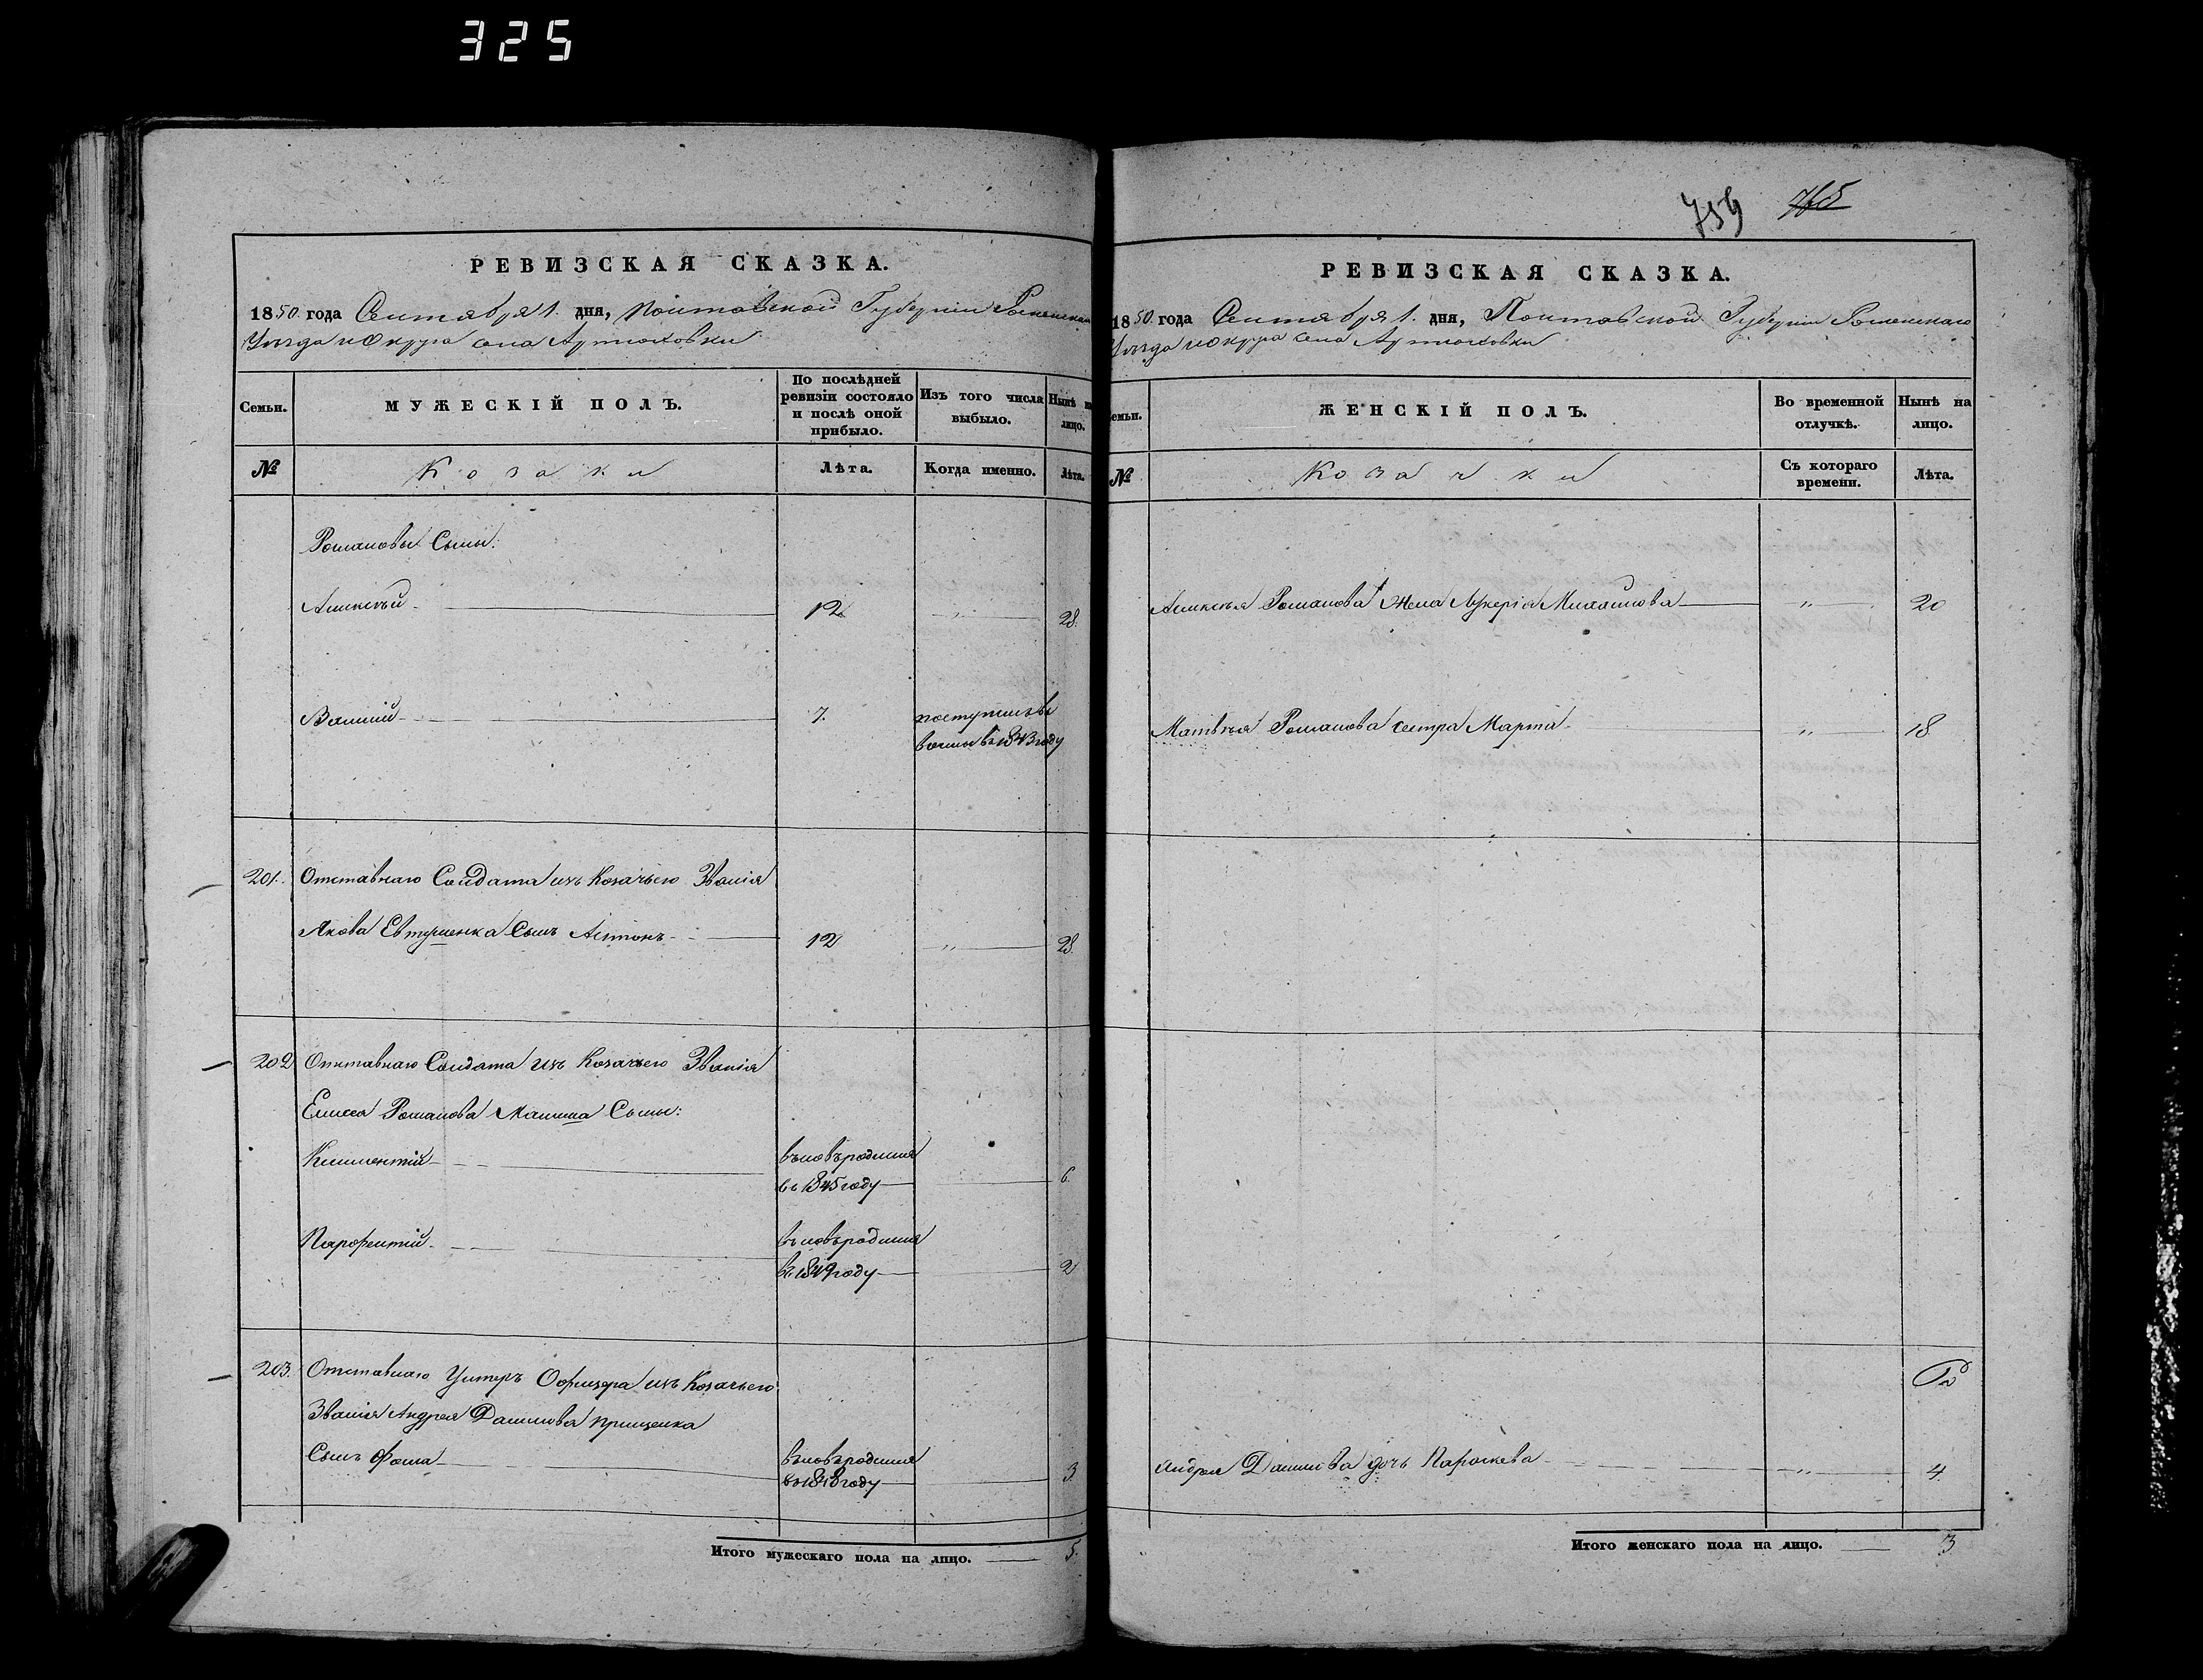 325
759 765
РЕВИЗСКАЯ СКАЗКА.
1850 года Сентября 1. дня, Полтавской Губерніи Роменскаго
Уѣзда и Округа села Артюховки
Семьи. МУЖЕСКІЙ ПОЛЪ. По послѣдней ревизіи состояло и послѣ оной прибыло. Изъ того числа выбыло. Нынѣ на лицо.
№ Козаки Лѣта. Когда именно. Лѣта.
Романовы Сыны:
Алексѣй 12 " 28.
Василій 7. поступилъ въ
въ 1843 году
201. Отставнаго Солдата изъ Козачьего Званія
Якова Евтушенка Сынъ Антонъ 12 " 28.
202 Отставнаго Солдата изъ Козачьего Званія
Елисея Романова Сыны:
Климентій вновьродился
въ 1845 году 6.
Парфентій вновьродился
въ 1849 году 2
203. Отставнаго Унтеръ Офицера изъ Козачьего
Званія Андрея Данилова Прищенка
Сынъ Фома вновьродился
въ 1848 году 3.
Итого мужескаго пола на лицо. 5.
РЕВИЗСКАЯ СКАЗКА.
1850 года Сентября 1. дня, Полтавской Губерніи Роменскаго
Уѣзда и Округа села Артюховки
Семьи. ЖЕНСКІЙ ПОЛЪ. Во временной отлучкѣ. Нынѣ на лицо.
№ Козачки Съ котораго времени. Лѣта.
Алексѣя Романова Жена Лукерія Михайлова " 20
Матвѣя Романова сестра Марта " 18
Андрея Данилова дочь Параскева " 4.
Итого женскаго пола на лицо. 3